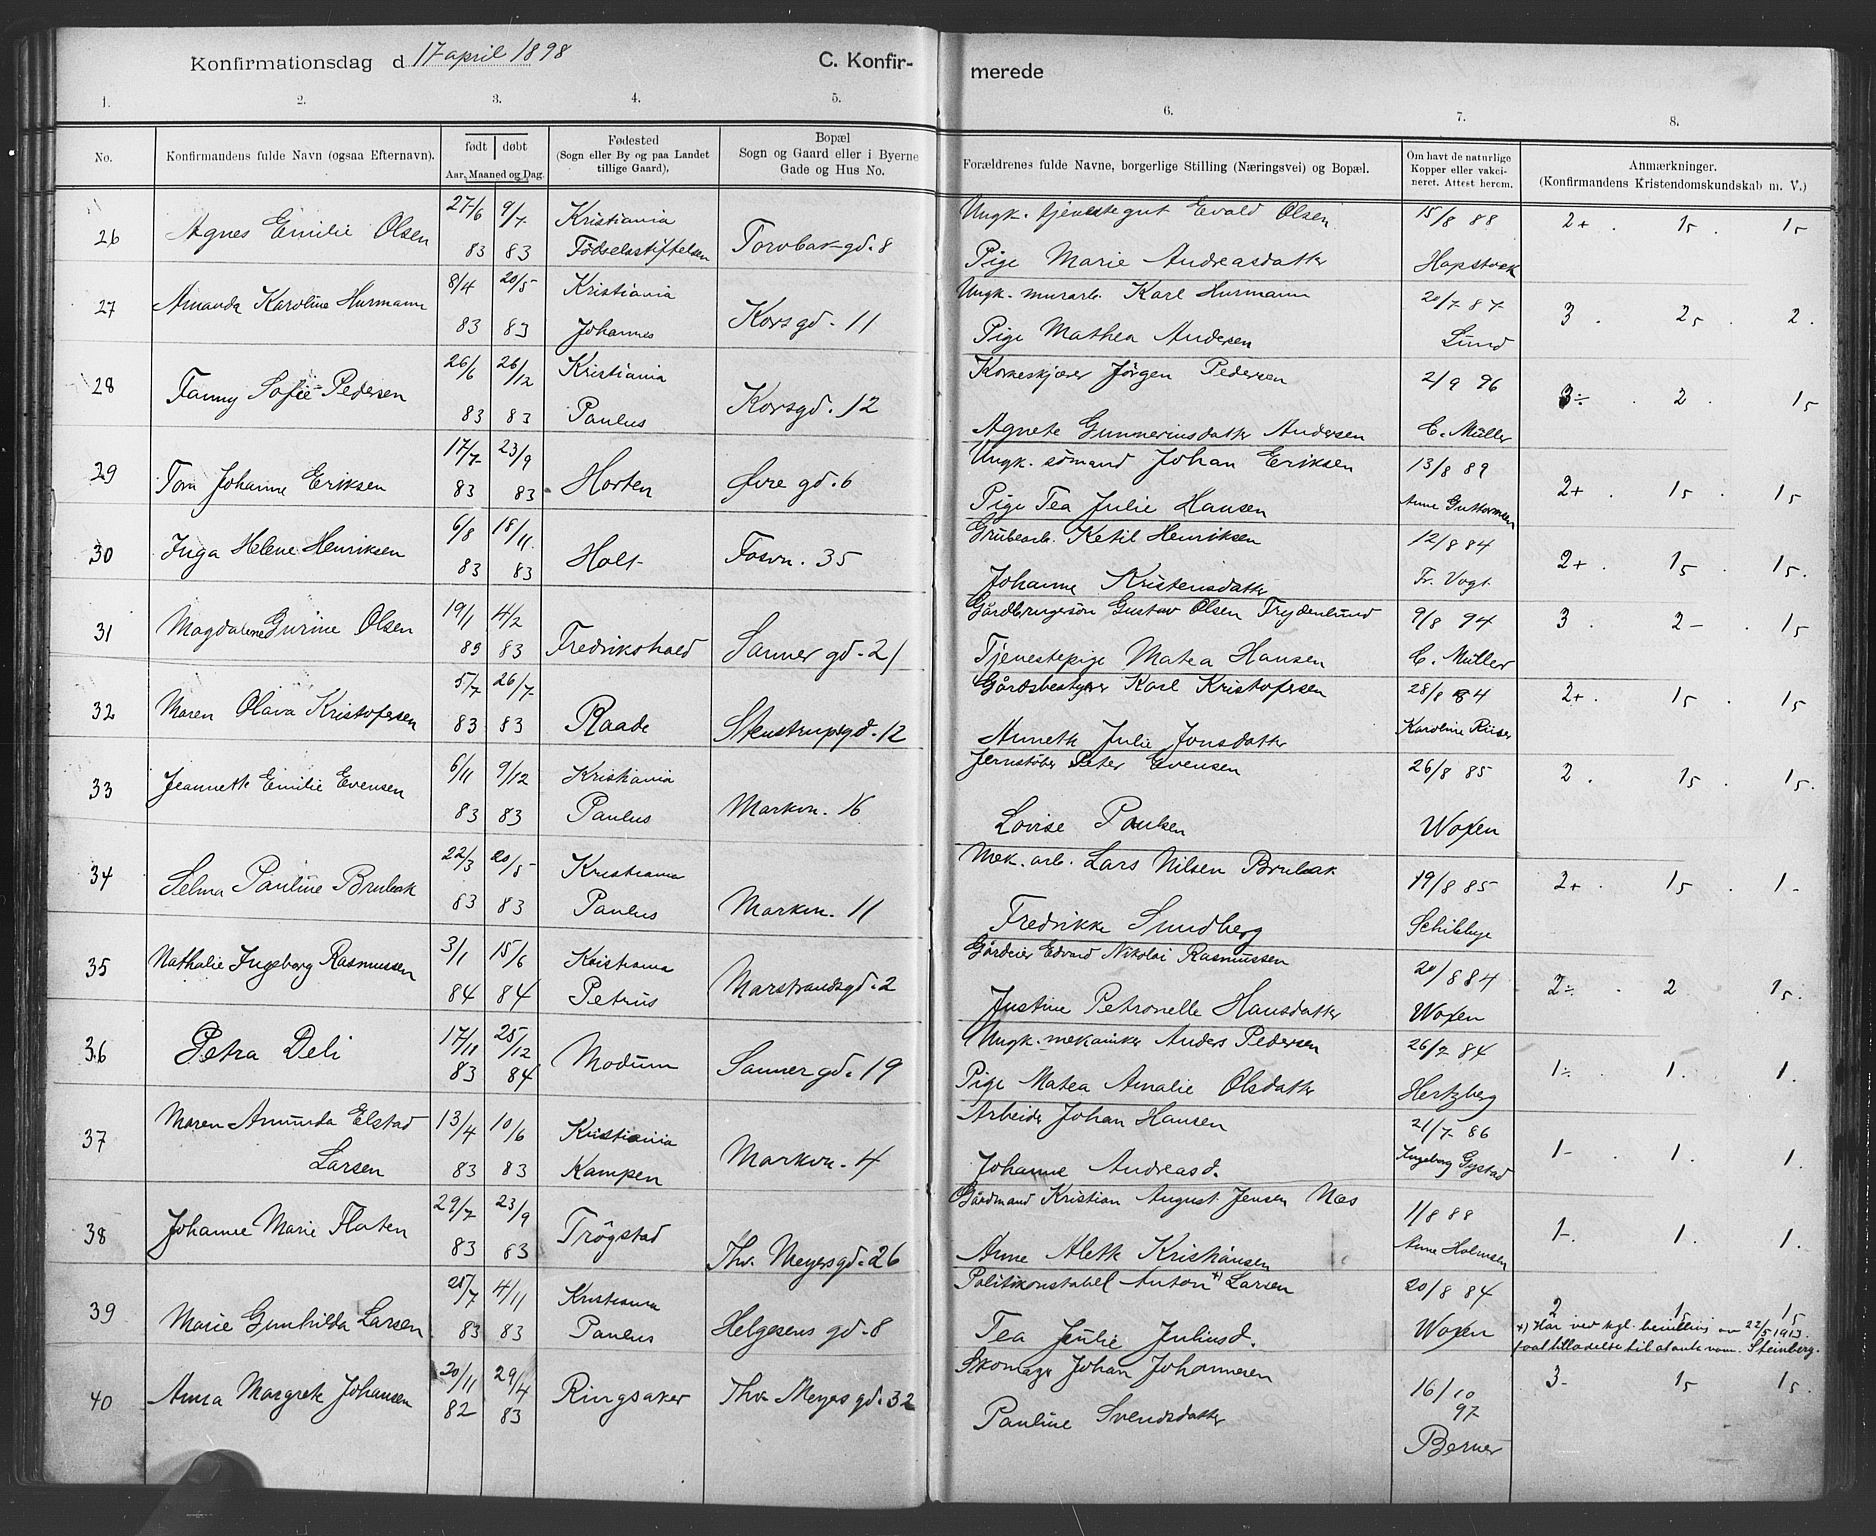 Konfirmationsdag d 17 april 1898 C. Konfir- merede
1. 2. 3. 4. 5. 6. 7. 8.
No. Konfirmandens fulde Navn (ogsaa Efternavn). født døbt Aar, Maaned og Dag. Fødested (Sogn eller By og paa Landet tillige Gaard). Bopæl Sogn og Gaard eller i Byerne Gade og Hus No. Forældrenes fulde Navne, borgerlige Stilling (Næringsvei) og Bopæl. Om havt de naturlige Kopper eller vakcineret. Attest herom. Anmærkninger. (Konfirmandens Kristendomskundskab m. V.)
26 Agnes Emilie Olsen 27/6 83 9/7 83 Kristiania Fødselsstiftelsen Torvbakgd. 8 Ungk. tjenestegut Evald Olsen 15/8 88 2+ . 15 . 15
Pige Marie Andreasdatter Hapstock
27 Amanda Karoline Hurmann 8/4 83 20/5 83 Kristiania Johannes Korsgd. 11 Ungk. murarb. Karl Hurmann 20/7 87 3 . 25 . 2.
Pige Mathea Andersen Lund
28 Fanny Sofie Pedersen 26/6 83 26/12 83 Kristiania Paulus Korsgd. 12 Korneskjærer Jörgen Pedersen 2/9 96 3÷ . 2 . 15
Agnete Gunneriusdatter Andersen C. Müller
29 Tora Johanne Eriksen 17/7 83 23/9 83 Horten Øvre gd. 6 Ungk. sömand Johan Eriksen 13/8 89 2+ . 15 . 15
Pige Tea Julie Hansen Anne Guttormsen
30 Inga Helene Henriksen 6/8 83 18/11 83 Holt Fosvn. 35 Grubearb. Ketil Henriksen 12/8 84 2+ . 15 . 15.
Johanne Kristensdatter Fr. Vogt
31 Magdalene Gurine Olsen 19/1 83 4/2 83 Fredrikshald Sannergd. 21 Gårdbrugersön Gustav Olsen Frydenlund 9/8 94 3 . 2- . 15
Tjenestepige Matea Hansen C. Müller
32 Maren Olava Kristofersen 5/7 83 26/7 83 Raade Stenstrupsgd. 12 Gårdsbestyrer Karl Kristofersen 28/8 84 2+ . 15 . 15
Annette Julie Jonsdatter Karoline Riiser
33 Jeannette Emilie Evensen 6/11 83 9/12 83 Kristiania Paulus Markvn. 16 Jernstöber Peter Evensen 26/8 85 2 . 15 . 15.
Lovise Paulsen Woxen
34 Selma Pauline Brubak 22/3 83 20/5 83 Kristiania Paulus Markvn. 11 Mek. arb. Lars Nilsen Brubak 19/8 85 2+ . 15 . 1-
Fredrikke Sundberg Schibbye
35 Nathalie Ingeborg Rasmussen 3/1 84 15/6 84 Kristiania Petrus Marstrandsgd. 2 Gårdeier Edvard Nikolai Rasmussen 20/8 84 2÷ . 2 . 15.
Justine Petronelle Hansdatter Woxen
36 Petra Deli 17/11 83 25/12 84 Modum Sannergd. 19 Ungk. mekaniker Anders Pedersen 26/7 84 1÷ . 1. 1.
Pige Matea Amalie Olsdatter Hertzberg
37 Maren Amunda Elstad Larsen 13/4 83 10/6 83 Kristiania Kampen Markvn. 4 Arbeider Johan Hansen 21/7 86 1- . 1. 1.
Johanne Andreasd. Ingeborg Gystad
38 Johanne Marie Flaten 29/7 83 23/9 83 Trögstad Thv. Meyersgd. 26 Gårdmand Kristian August Jensen Næs 1/8 88 1- . 1. 1.
Anne Alette Kristiansen Anne Holmsen
39 Marie Gunhilda Larsen 25/7 83 4/11 83 Kristiania Paulus Helgesens gd. 8 Politikonstabel Anton +) Larsen 20/8 84 2 15 15
Tea Julie Juliusd. Woxen +) Har ved kgl. bevilling av 22/5 1913
faat tilladelse til at anta navn. Steinberg.
40 Anna Margrete Johansen 20/11 82 29/4 83 Ringsaker Thv. Meyersgd. 32 Skomager Johan Johannesen 16/10 97 3- 15 15.
Pauline Svendsdatter Berner